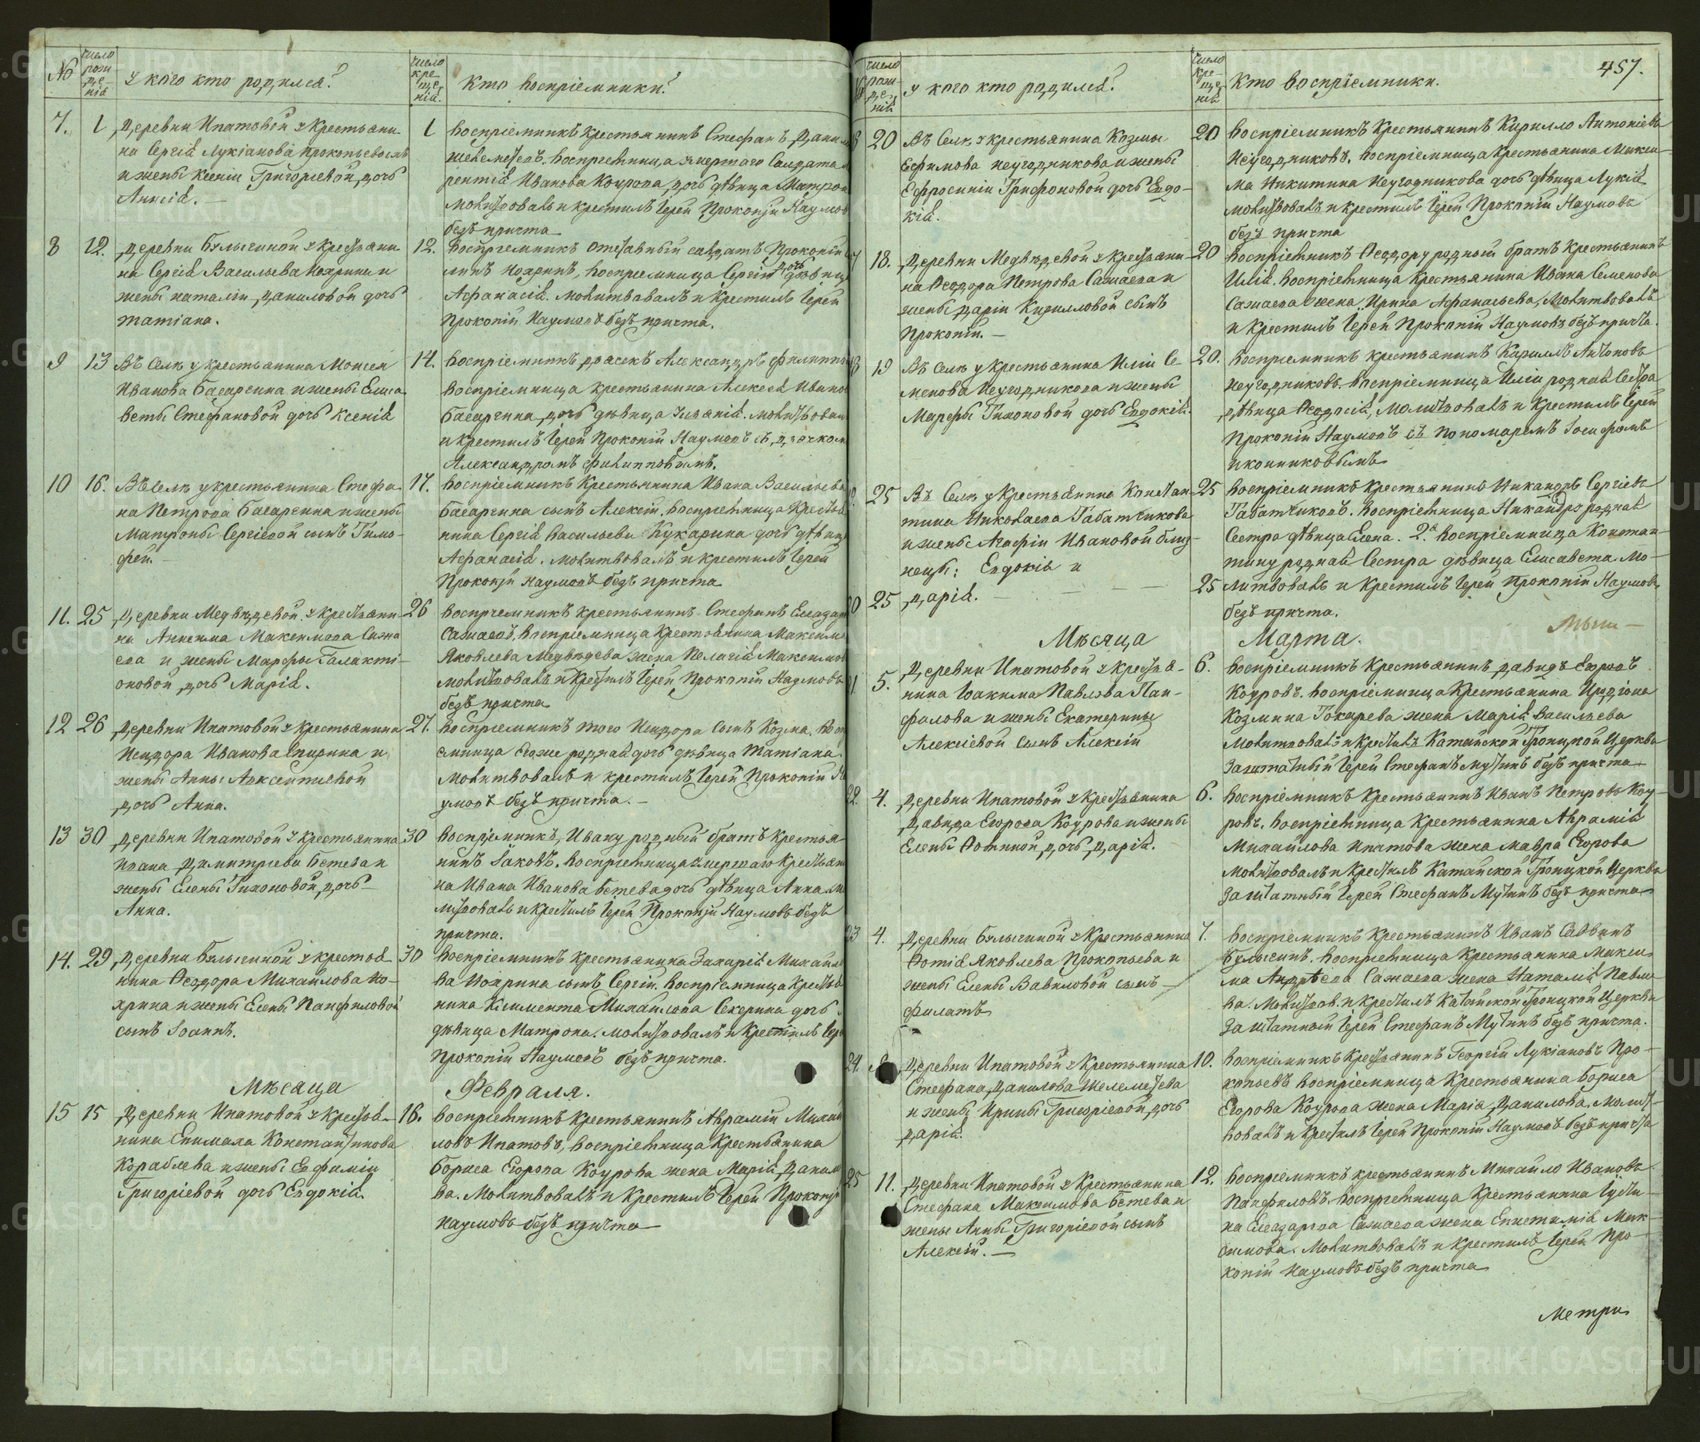 №
число рождения
У кого кто родился?
число крещения
Кто воспріемники?
7.
1
Деревни Ипатовой у Крестьяни-
на Сергія Лукіанова Прокопьева
и жены Ксеніи Григорьевой дочь
Анисія. —
1
Воспріемникъ Крестьянинъ Стефанъ Данил
Шелеметевъ, воспріемница умершаго Солдата
рентія Иванова Коурова дочь дѣвица Матрон
молитвовалъ и крестилъ Іерей Прокопій Наумовъ
безъ причта
8
12.
Деревни Булыгиной у Крестьяни-
на Сергія Васильева Нохрина и
жены Наталіи Даниловой дочь
Татіана.
12.
Воспріемникъ отставный солдатъ Прокопій
Нохринъ, воспріемница Сергія дочь дѣвица
Афанасія. Молитвовалъ и Крестилъ Іерей
Прокопій Наумовъ безъ причта.
9
13
Въ Селѣ у крестьянина Моисея
Иванова Басаргина и жены Елиса-
веты Стефановой дочь Ксенія
14.
Воспріемникъ дьячекъ Александръ Филиппо
Воспріемница крестьянина Алексея Ивано
Басаргина дочь дѣвица молитвовал
и крестилъ Іерей Прокопій Наумовъ съ дьячком
Александромъ Филипповымъ.
10
16.
Въ Селѣ у крестьянина Стефа-
на Петрова Басаргина и жены
Матроны Сергіевой сынъ Тимо-
фей. —
17.
Воспріемникъ Крестьянина Ивана Васильева
Басаргина сынъ Алексій, воспріемница Кресть
нина Сергія Васильева Кукарина дочь дѣвица
Афанасія. Молитвовалъ и крестилъ Іерей
Прокопій Наумовъ безъ причта
11.
25
Деревни Медвѣдевой у Крестьяни-
на Анисима Максимова Сажа
ева и жены Марфы Галакті-
оновой дочь Марія.
26
Воспріемникъ крестьянинъ Стефанъ Елеазар
Сажаевъ, воспріемница Крестьянина Максим
Яковлева Медвѣдева жена Пелагія Максимов
молитвовалъ и Крестилъ Іерей Прокопій Наумовъ
безъ причта
12
26
Деревни Ипатовой у Крестьянина
Исидора Иванова Спирина и
жены Анны Авксентіевой
дочь Анна.
27.
Воспріемникъ того Исидора сынъ Козма, Восп
емница его же родная дочь дѣвица Татіана
Молитвовалъ и крестилъ Іерей Прокопій На
умовъ безъ причта. —
13
30
Деревни Ипатовой у Крестьянина
Ивана Димитріева Бетева и
жены Елены Тихоновой дочь
Анна.
30
Воспріемникъ, Ивану родный братъ Крестья
нинъ Іаковъ. Воспріемница умершаго Крестьян
на Ивана Иванова Бетева дочь дѣвица Анна мо
литвовалъ и крестилъ Іерей Прокопій Наумовъ безъ
причта.
14.
29
Деревни Булыгиной у Крестья-
нина Ѳеодора Михайлова Но-
хрина и жены Елены Панфиловой
сынъ Іоаннъ.
30
Воспріемникъ Крестьянина Захарія Михайло
ва Нохрина сынъ Сергій. Воспріемница Кресть
нина Климента Михайлова Секерина дочь
дѣвица Матрона. Молитвовалъ и Крестилъ Іерей
Прокопій Наумовъ безъ причта.
Мѣсяца
Февраля.
15
15
Деревни Ипатовой у Крестья-
нина Епимаха Константинова
Кораблева и жены Евфиміи
Григоріевой дочь Евдокія.
16.
Воспріемникъ Крестьянинъ Аврамій Михай
ловъ Ипатовъ, воспріемница Крестьянина
Бориса Егорова Коурова жена Марія Данило
ва. Молитвовалъ и Крестилъ Іерей Прокопій
Наумовъ безъ причта
457.
число рождения
У кого кто родился?
число крещения
Кто воспріемники.
20
Въ Селѣ у крестьянина Козмы
Ефимова Неугодникова и жены
Ефросиніи Трифоновой дочь Евдо-
кія.
20
Воспріемникъ Крестьянинъ Кирилло Антоніевъ
Неугодниковъ, воспріемница крестьянина Макси-
ма Никитина Неугодникова дочь дѣвица Лукія
молитвовалъ и крестилъ Іерей Прокопій Наумовъ
безъ причта
18.
Деревни Медвѣдевой у Крестьяни-
на Ѳеодора Петрова Сажаева и
жены Даріи Кирилловой сынъ
Прокопій. —
20
Воспріемникъ Ѳеодору родный братъ Крестьянинъ
Илія, воспріемница Крестьянина Ивана Семенова
Сажаева жена Ирина Афанасьева, Молитвовалъ
и Крестилъ Іерей Прокопій Наумовъ безъ причта.
19
Въ Селѣ у крестьянина Иліи Се-
менова Неугодникова и жены
Марфы Тихоновой дочь Евдокія.
20.
Воспріемникъ крестьянинъ Кириллъ Антоновъ
Неугодниковъ, воспріемница Иліи родная Сестра
дѣвица Ѳеодосія, Молитвовалъ и Крестилъ Іерей
Прокопій Наумовъ съ Пономаремъ Іосифомъ
Иконниковымъ
25
Въ Селѣ у Крестьянина Констан-
тина Николаева Габатчикова
и жены Агафіи Ивановой близ-
нецы: Евдокія и
20
25
Дарія.
25
Воспріемникъ Крестьянинъ Никаноръ Сергіевъ
Габатчиковъ. Воспріемница Никандру родная
Сестра дѣвица Елена. 2я Воспріемница Констан-
тину родная Сестра дѣвица Елисавета. Мо-
25
литвовалъ и Крестилъ Іерей Прокопій Наумовъ
безъ причта.
Мѣсяца
Марта.
5.
Деревни Ипатовой у Крестья-
нина Іоакима Павлова Пан-
филова и жены Екатерины
Алексіевой сынъ Алексій
6.
Воспріемникъ Крестьянинъ Давидъ Егоровъ
Коуровъ. Воспріемница Крестьянина Иродіона
Козмина Токарева жена Марія Васильева
Молитвовалъ и крестилъ Катайской Троицкой Церкви
Заштатный Іерей Стефанъ Мутинъ безъ причта
22.
4.
Деревни Ипатовой у Крестьянина
Давида Егорова Коурова и жены
Елены Фотиной дочь Дарія.
6.
Воспріемникъ Крестьянинъ Иванъ Петровъ Коу-
ровъ, воспріемница Крестьянина Аврамія
Михайлова Ипатова жена Мавра Егорова
Молитвовалъ и Крестилъ Катайской Троицкой Церкви
Заштатный Іерей Стефанъ Мутинъ безъ причта
23
4.
Деревни Булыгиной у Крестьянина
Фотія Яковлева Прокопьева и
жены Елены Вавиловой сынъ —
Филатъ
7.
Воспріемникъ Крестьянинъ Иванъ Саввинъ
Булыгинъ. Воспріемница Крестьянина Макси-
ма Андреева Сажаева жена Наталія Павло-
ва. Молитвов. и крестилъ Катайской Троицкой Церкви
Заштатный Іерей Стефанъ Мутинъ безъ причта.
24.
8
Деревни Ипатовой у Крестьянина
Стефана Данилова Шелеметева
и жены Ирины Григоріевой дочь
Дарія.
10.
Воспріемникъ Крестьянинъ Георгій Лукіановъ Про-
копьевъ воспріемница Крестьянина Бориса
Егорова Коурова жена Марія Данилова. Молит-
вовалъ и крестилъ Іерей Прокопій Наумовъ безъ причта
25
11.
Деревни Ипатовой у Крестьянина
Стефана Максимова Бетева и
жены Анны Григоріевой сынъ
Алексій. —
12.
Воспріемникъ крестьянинъ Михайло Ивановъ
Панфиловъ. воспріемница Крестьянина Іусти-
на Елеазарова Сажаева жена Епистимія Мак-
симова. Молитвовалъ и Крестилъ Іерей Про-
копій Наумовъ безъ причта
Метри
METRIKI.GASO-URAL.RU